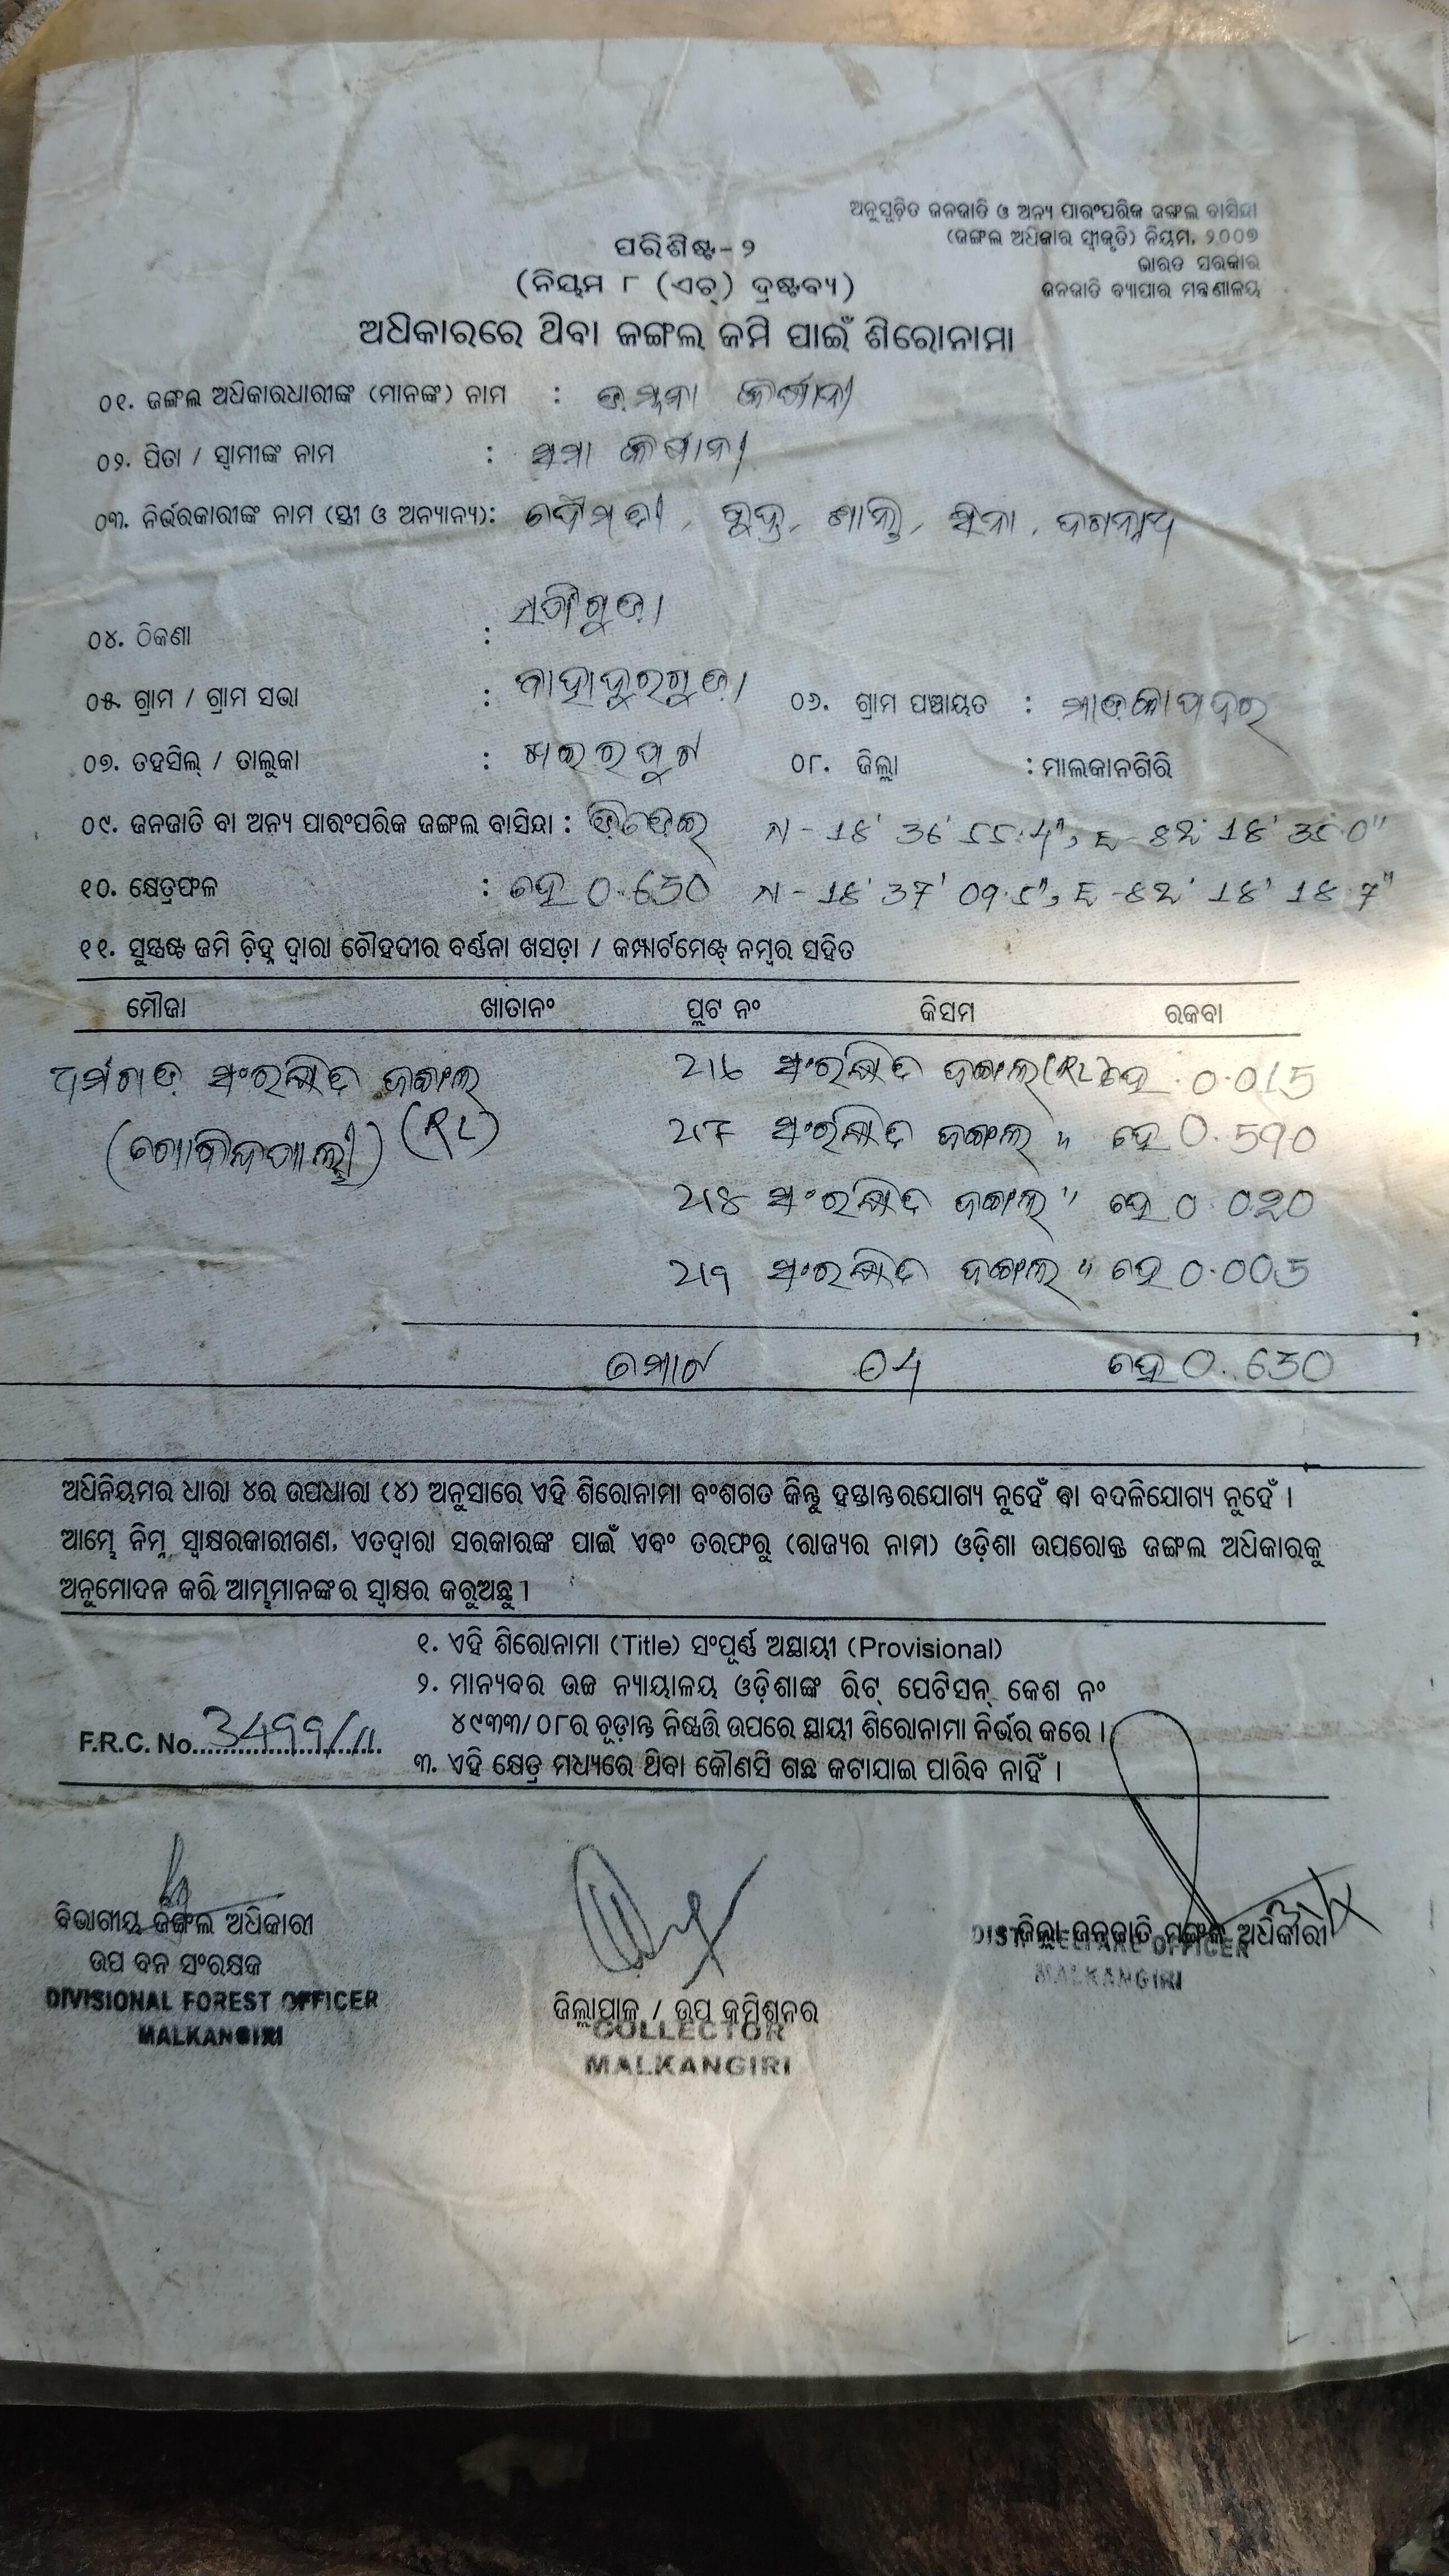 ଅନୁସୂଚିତ ଜନଜାତି ଓ ଅନ୍ୟ ପାରଂପରିକ ଜଙ୍ଗଲ ବାସିନ୍ଦା
(ଜଙ୍ଗଲ ଅଧିକାର ସ୍ୱୀକୃତି) ନିୟମ, ୨୦୦୭
ଭାରତ ସରକାର
ଜନଜାତି ବ୍ୟାପାର ମନ୍ତ୍ରଣାଳୟ
ପରିଶିଷ୍ଟ-୨
(ନିୟମ ୮ (ଏଚ୍) ଦ୍ରଷ୍ଟବ୍ୟ)
ଅଧିକାରରେ ଥିବା ଜଙ୍ଗଲ ଜମି ପାଇଁ ଶିରୋନାମା
୦୧. ଜଙ୍ଗଲ ଅଧିକାରଧାରୀଙ୍କ (ମାନଙ୍କ) ନାମ :
୦୨. ପିତା / ସ୍ୱାମୀଙ୍କ ନାମ :
୦୩. ନିର୍ଭରକାରୀଙ୍କ ନାମ (ସ୍ତ୍ରୀ ଓ ଅନ୍ୟାନ୍ୟ):
୦୪. ଠିକଣା :
୦୫. ଗ୍ରାମ / ଗ୍ରାମ ସଭା : ବାହାଦୁରଗୁଡ଼ା ୦୬. ଗ୍ରାମ ପଞ୍ଚାୟତ :
୦୭. ତହସିଲ୍ / ତାଲୁକା : ଖଇରପୁଟ ୦୮. ଜିଲ୍ଲା : ମାଲକାନଗିରି
୦୯. ଜନଜାତି ବା ଅନ୍ୟ ପାରଂପରିକ ଜଙ୍ଗଲ ବାସିନ୍ଦା : N - 18° 36' 55.4", E - 82° 18' 35.0"
୧୦. କ୍ଷେତ୍ରଫଳ : ହେ 0.630 N - 18° 37' 09.5", E - 82° 18' 18.7"
୧୧. ସୁସ୍ପଷ୍ଟ ଜମି ଚିହ୍ନ ଦ୍ୱାରା ଚୌହଦୀର ବର୍ଣ୍ଣନା ଖସଡ଼ା / କମ୍ପାର୍ଟମେଣ୍ଟ୍ ନମ୍ବର ସହିତ
ମୌଜା ଖାତାନଂ ପ୍ଲଟ ନଂ କିସମ ରକବା
ସଂରକ୍ଷିତ ଜଙ୍ଗଲ 216 ସଂରକ୍ଷିତ ଜଙ୍ଗଲ (RL) ହେ 0.015
(RL) 217 ସଂରକ୍ଷିତ ଜଙ୍ଗଲ " ହେ 0.590
218 ସଂରକ୍ଷିତ ଜଙ୍ଗଲ " ହେ 0.020
219 ସଂରକ୍ଷିତ ଜଙ୍ଗଲ " ହେ 0.005
ମୋଟ 04 ହେ 0.630
ଅଧିନିୟମର ଧାରା ୪ର ଉପଧାରା (୪) ଅନୁସାରେ ଏହି ଶିରୋନାମା ବଂଶଗତ କିନ୍ତୁ ହସ୍ତାନ୍ତରଯୋଗ୍ୟ ନୁହେଁ ବା ବଦଳିଯୋଗ୍ୟ ନୁହେଁ ।
ଆମ୍ଭେ ନିମ୍ନ ସ୍ୱାକ୍ଷରକାରୀଗଣ, ଏତଦ୍ୱାରା ସରକାରଙ୍କ ପାଇଁ ଏବଂ ତରଫରୁ (ରାଜ୍ୟର ନାମ) ଓଡ଼ିଶା ଉପରୋକ୍ତ ଜଙ୍ଗଲ ଅଧିକାରକୁ
ଅନୁମୋଦନ କରି ଆମ୍ଭମାନଙ୍କର ସ୍ୱାକ୍ଷର କରୁଅଛୁ ।
୧. ଏହି ଶିରୋନାମା (Title) ସଂପୂର୍ଣ୍ଣ ଅସ୍ଥାୟୀ (Provisional)
୨. ମାନ୍ୟବର ଉଚ୍ଚ ନ୍ୟାୟାଳୟ ଓଡ଼ିଶାଙ୍କ ରିଟ୍ ପେଟିସନ୍ କେଶ ନଂ
୪୯୩୩/୦୮ର ଚୂଡ଼ାନ୍ତ ନିଷ୍ପତ୍ତି ଉପରେ ସ୍ଥାୟୀ ଶିରୋନାମା ନିର୍ଭର କରେ ।
F.R.C. No.
୩. ଏହି କ୍ଷେତ୍ର ମଧ୍ୟରେ ଥିବା କୌଣସି ଗଛ କଟାଯାଇ ପାରିବ ନାହିଁ ।
ବିଭାଗୀୟ ଜଙ୍ଗଲ ଅଧିକାରୀ
ଉପ ବନ ସଂରକ୍ଷକ
DIVISIONAL FOREST OFFICER
MALKANGIRI
ଜିଲ୍ଲାପାଳ / ଉପ କମିଶନର
COLLECTOR
MALKANGIRI
ଜିଲ୍ଲା ଜନଜାତି ମଙ୍ଗଳ ଅଧିକାରୀ
DIST. WELFARE OFFICER
MALKANGIRI